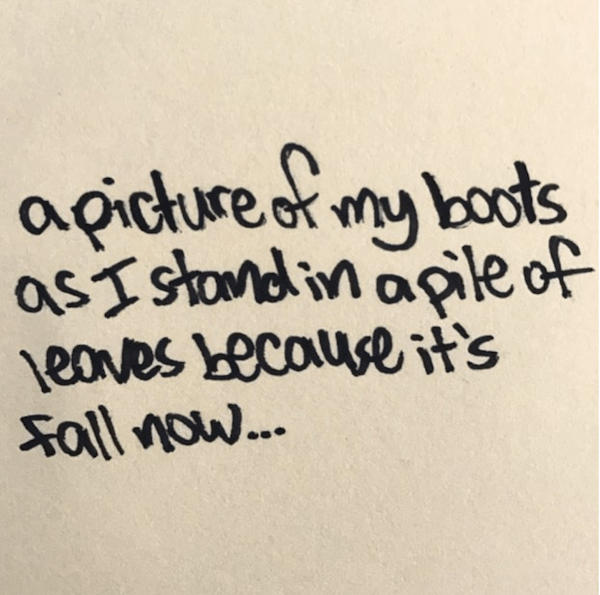 a picture of my boots
as I stand in a pile of
leaves because it's
fall now...